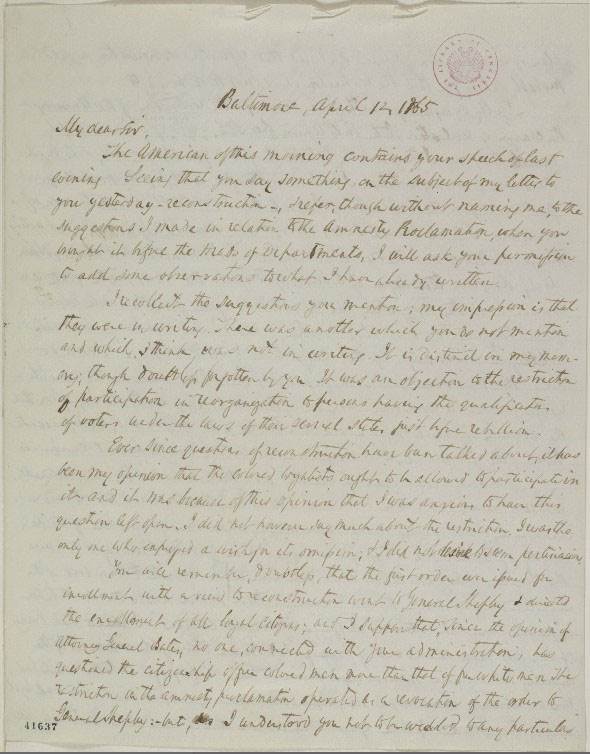 THE LIBRARY OF CONGRESS
Baltimore, April 12, 1865.
My dear Sir,
The American of this morning contains your speech of last
evening. Seeing that you say something on the subject of my letter to
you yesterday - reconstruction -, & refer, though without naming me, to the
suggestions I made in relation to the Amnesty Proclamation, when you
brought it before the Heads of Departments, I will ask your permission
to add some observations to what I have already written.
I recollect the suggestions you mention; my impression is that
they were in writing. There was another which you do not mention
and which, I think, was not in writing. It is distinct in my mem-
ory; though doubtless forgotten by you. It was an objection to the restriction
of participation in reorganization to persons having the qualifications
of voters under the laws of their several states just before rebellion.
Ever since questions of reconstruction have been talked about, it has
been my opinion that the colored loyalists ought to be allowed to participate in
it and it was because of this opinion that I was anxious to have this
question left open. I did not however say much about the restriction. I was the
only one who expressed a wish for its omission; & I did not desire to seem pertinacious.
You will remember, doubtless, that the first order ever issued for
enrollment with a view to reconstruction went to General Shepley & directed
the enrollment of all loyal citizens; and I suppose that, since the opinion of
Attorney General Bates, no one, connected with your administration, has
questioned the citizenship of free colored men more than that of free white men. The
restriction in the amnesty proclamation operated as a revocation of the order to
General Shepley: - but, as I understood you not to be wedded to any particular
41637